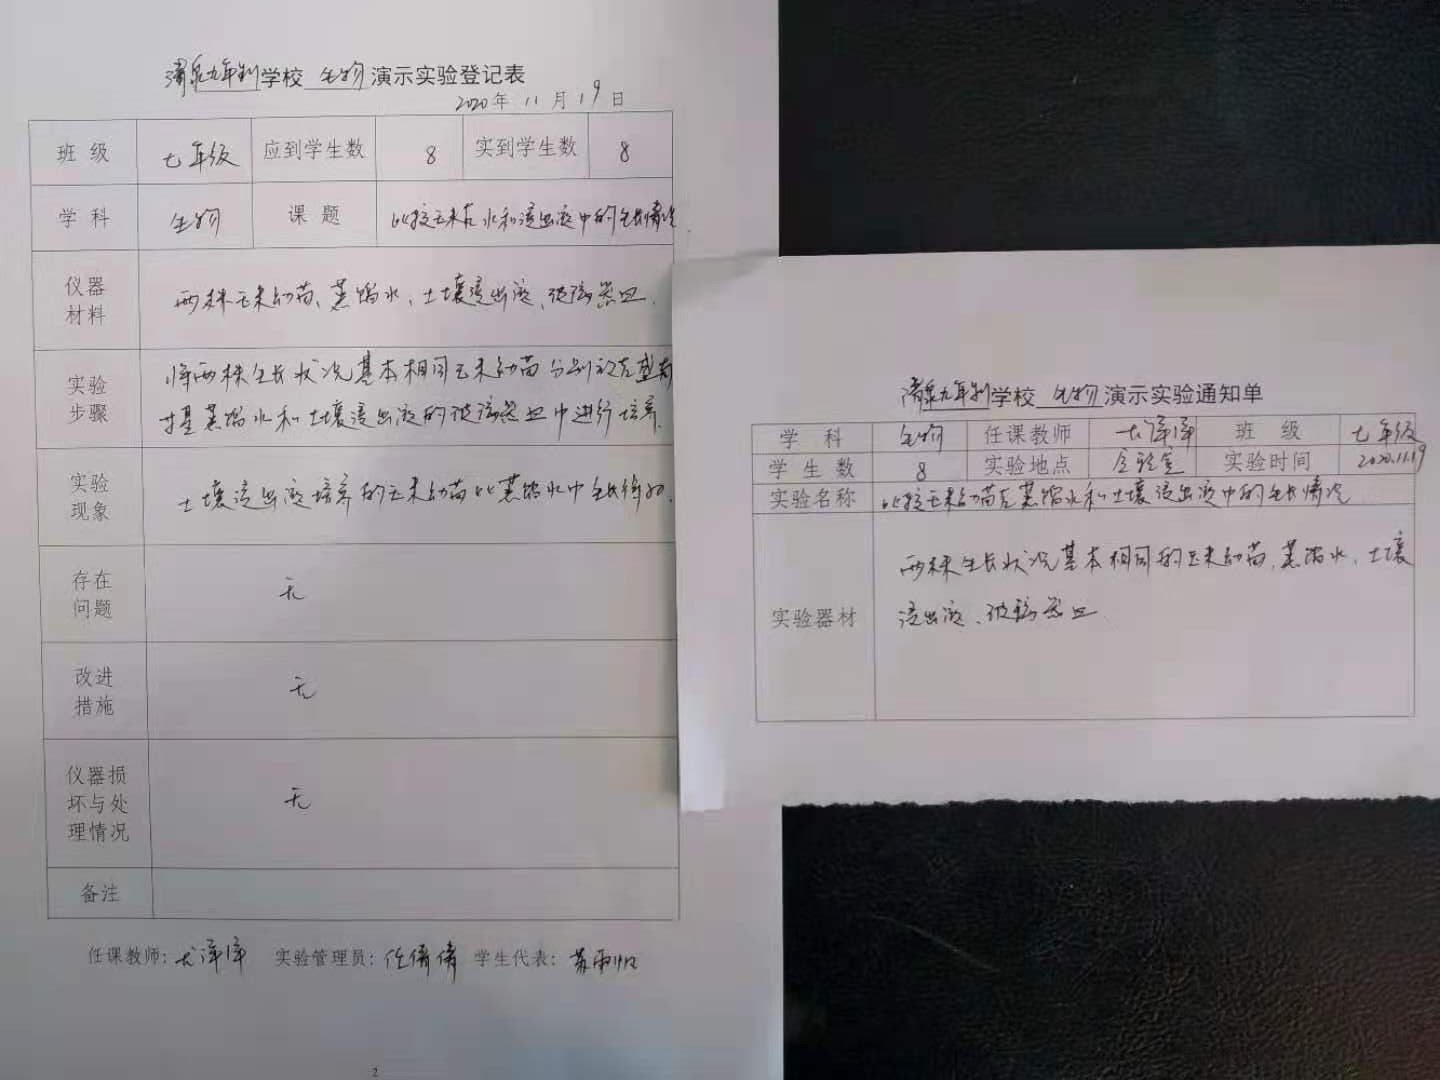 清泉九年制学校 生物 演示实验登记表
2020年 11 月 19 日
班 级 七年级 应到学生数 8 实到学生数 8
学 科 生物 课 题 比较玉米在水和浸出液中的生长情况
仪器
材料
两株玉米幼苗、蒸馏水、土壤浸出液、玻璃器皿.
实验
步骤
将两株生长状况基本相同玉米幼苗分别放在盛有
蒸馏水和土壤浸出液的玻璃器皿中进行培养.
实验
现象
土壤浸出液培养的玉米幼苗比蒸馏水中生长得好.
存在
问题
无
改进
措施
无
仪器损
坏与处
理情况
无
备注
任课教师: 尤泽泽 实验管理员: 任倩倩 学生代表:
2
清泉九年制学校 生物 演示实验通知单
学 科 生物 任课教师 尤泽泽 班 级 七年级
学 生 数 8 实验地点 实验室 实验时间 2020.11.19
实验名称 比较玉米幼苗在蒸馏水和土壤浸出液中的生长情况
实验器材
两株生长状况基本相同的玉米幼苗、蒸馏水、土壤
浸出液、玻璃器皿.